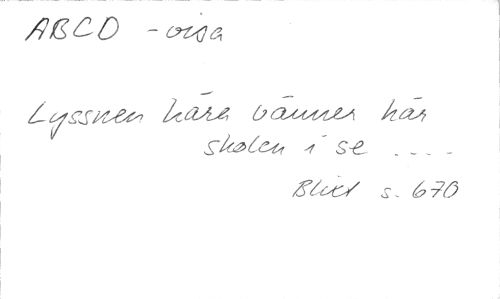 ABCD - visa
Lyssnen kära vänner här
skolen i se ....
Blixt s. 670